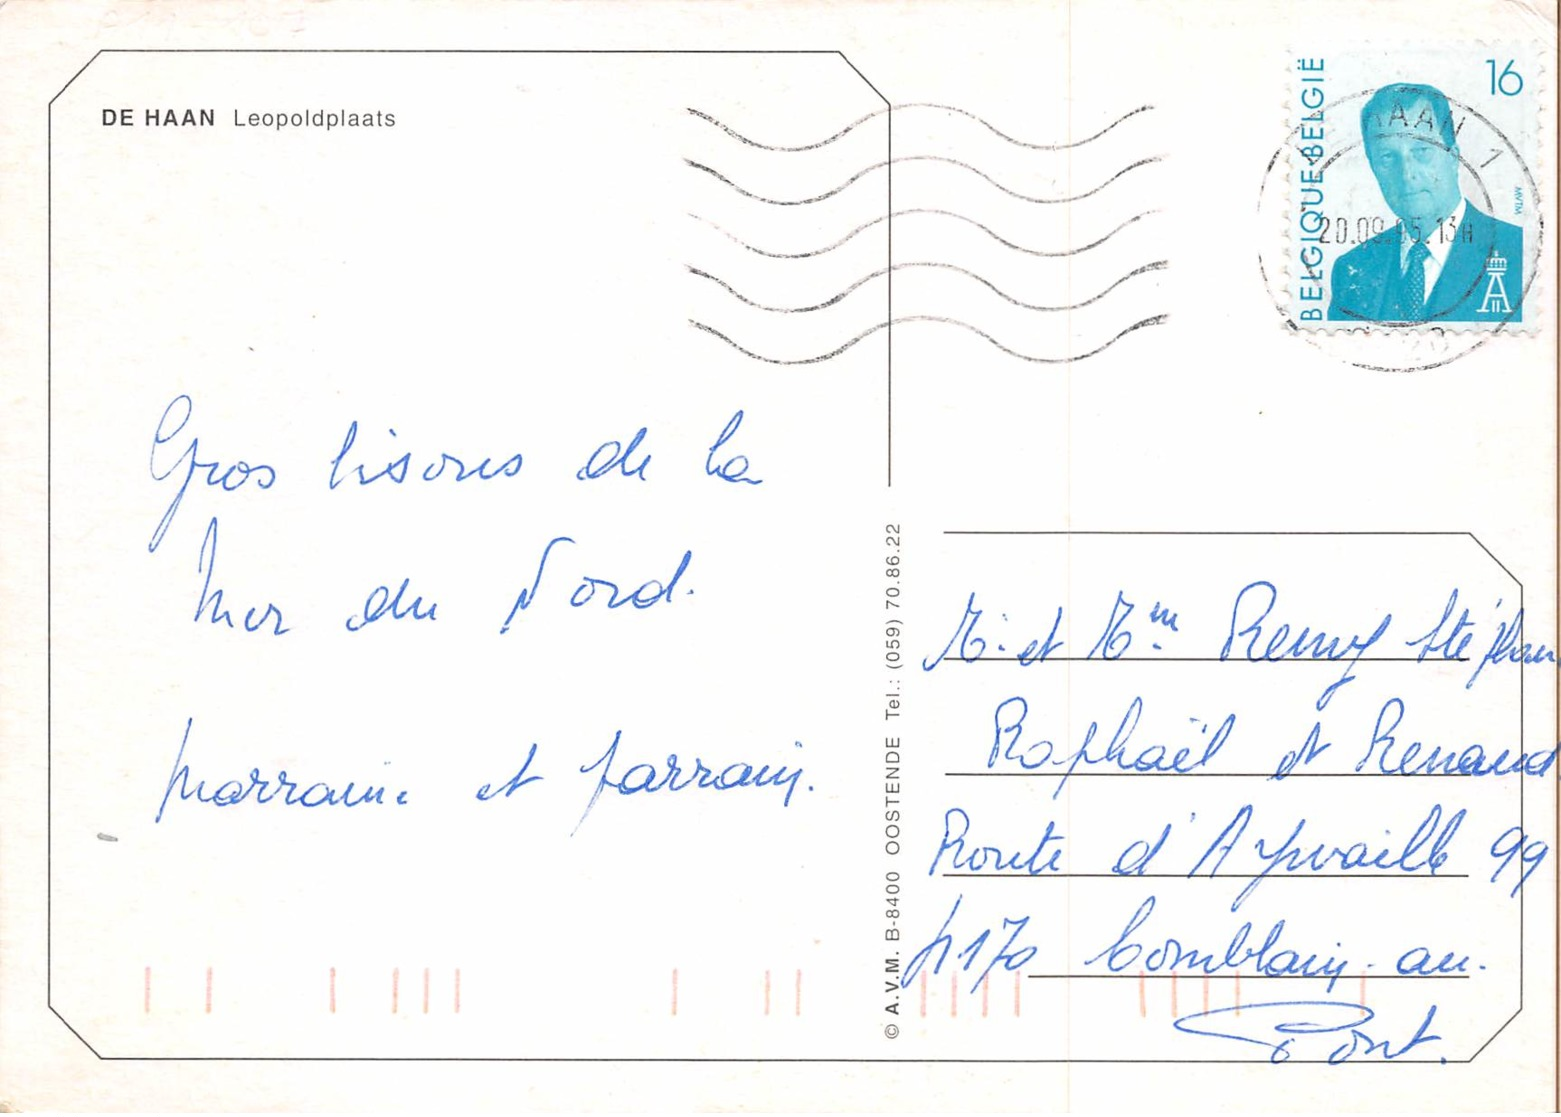 DE HAAN Leopoldplaats
Gros bisous de la
Mer du Nord.
Marraine et Parrain.
© A.V.M. B-8400 OOSTENDE Tel.: (059) 70.86.22
BELGIQUE·BELGIË
16
MVTM
HAAN 1
20.09.95.13H
M. et Mm Remy Stéphan
Raphaël et Renaud
Route d'Aywaille 99
4170 Comblain-au-
Pont.